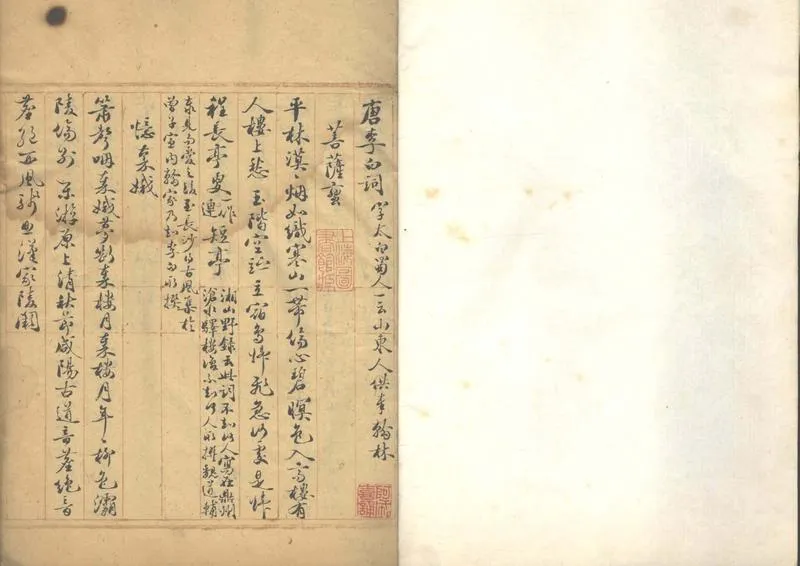 唐李白詞 字太白蜀人一云山東人供奉翰林
菩薩蠻
平林漠〻烟如織寒山一帶傷心碧暝色入高樓有
人樓上愁 玉階空竚立宿鳥歸飛急何處是歸
程長亭更一作連短亭 湘山野錄云此詞不知何人寫在鼎州
滄水驛樓復不知何人所撰魏道輔
泰見而愛之後至長沙得古風集於
曾子宣內翰家乃知李白所撰
憶秦娥
簫聲咽秦娥夢斷秦樓月秦樓月年〻柳色灞
陵傷別 樂遊原上清秋節咸陽古道音塵絕音
塵絕西風殘照漢家陵闕
上海圖
書館藏